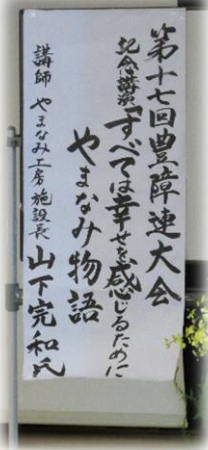 第十七回豊障連大会
記念講演「すべては幸せを感じるために
やまなみ物語
講師 やまなみ工房施設長 山下完和氏